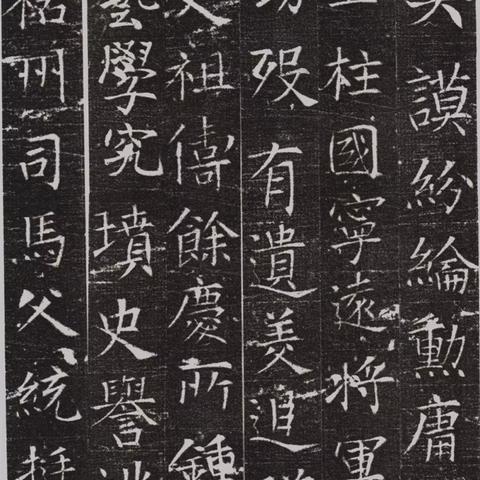 謨紛綸勳庸
柱國寧遠将軍
殁有遺美追
祖儔餘慶所鍾
藝學究墳史譽
祐州司馬父統挺